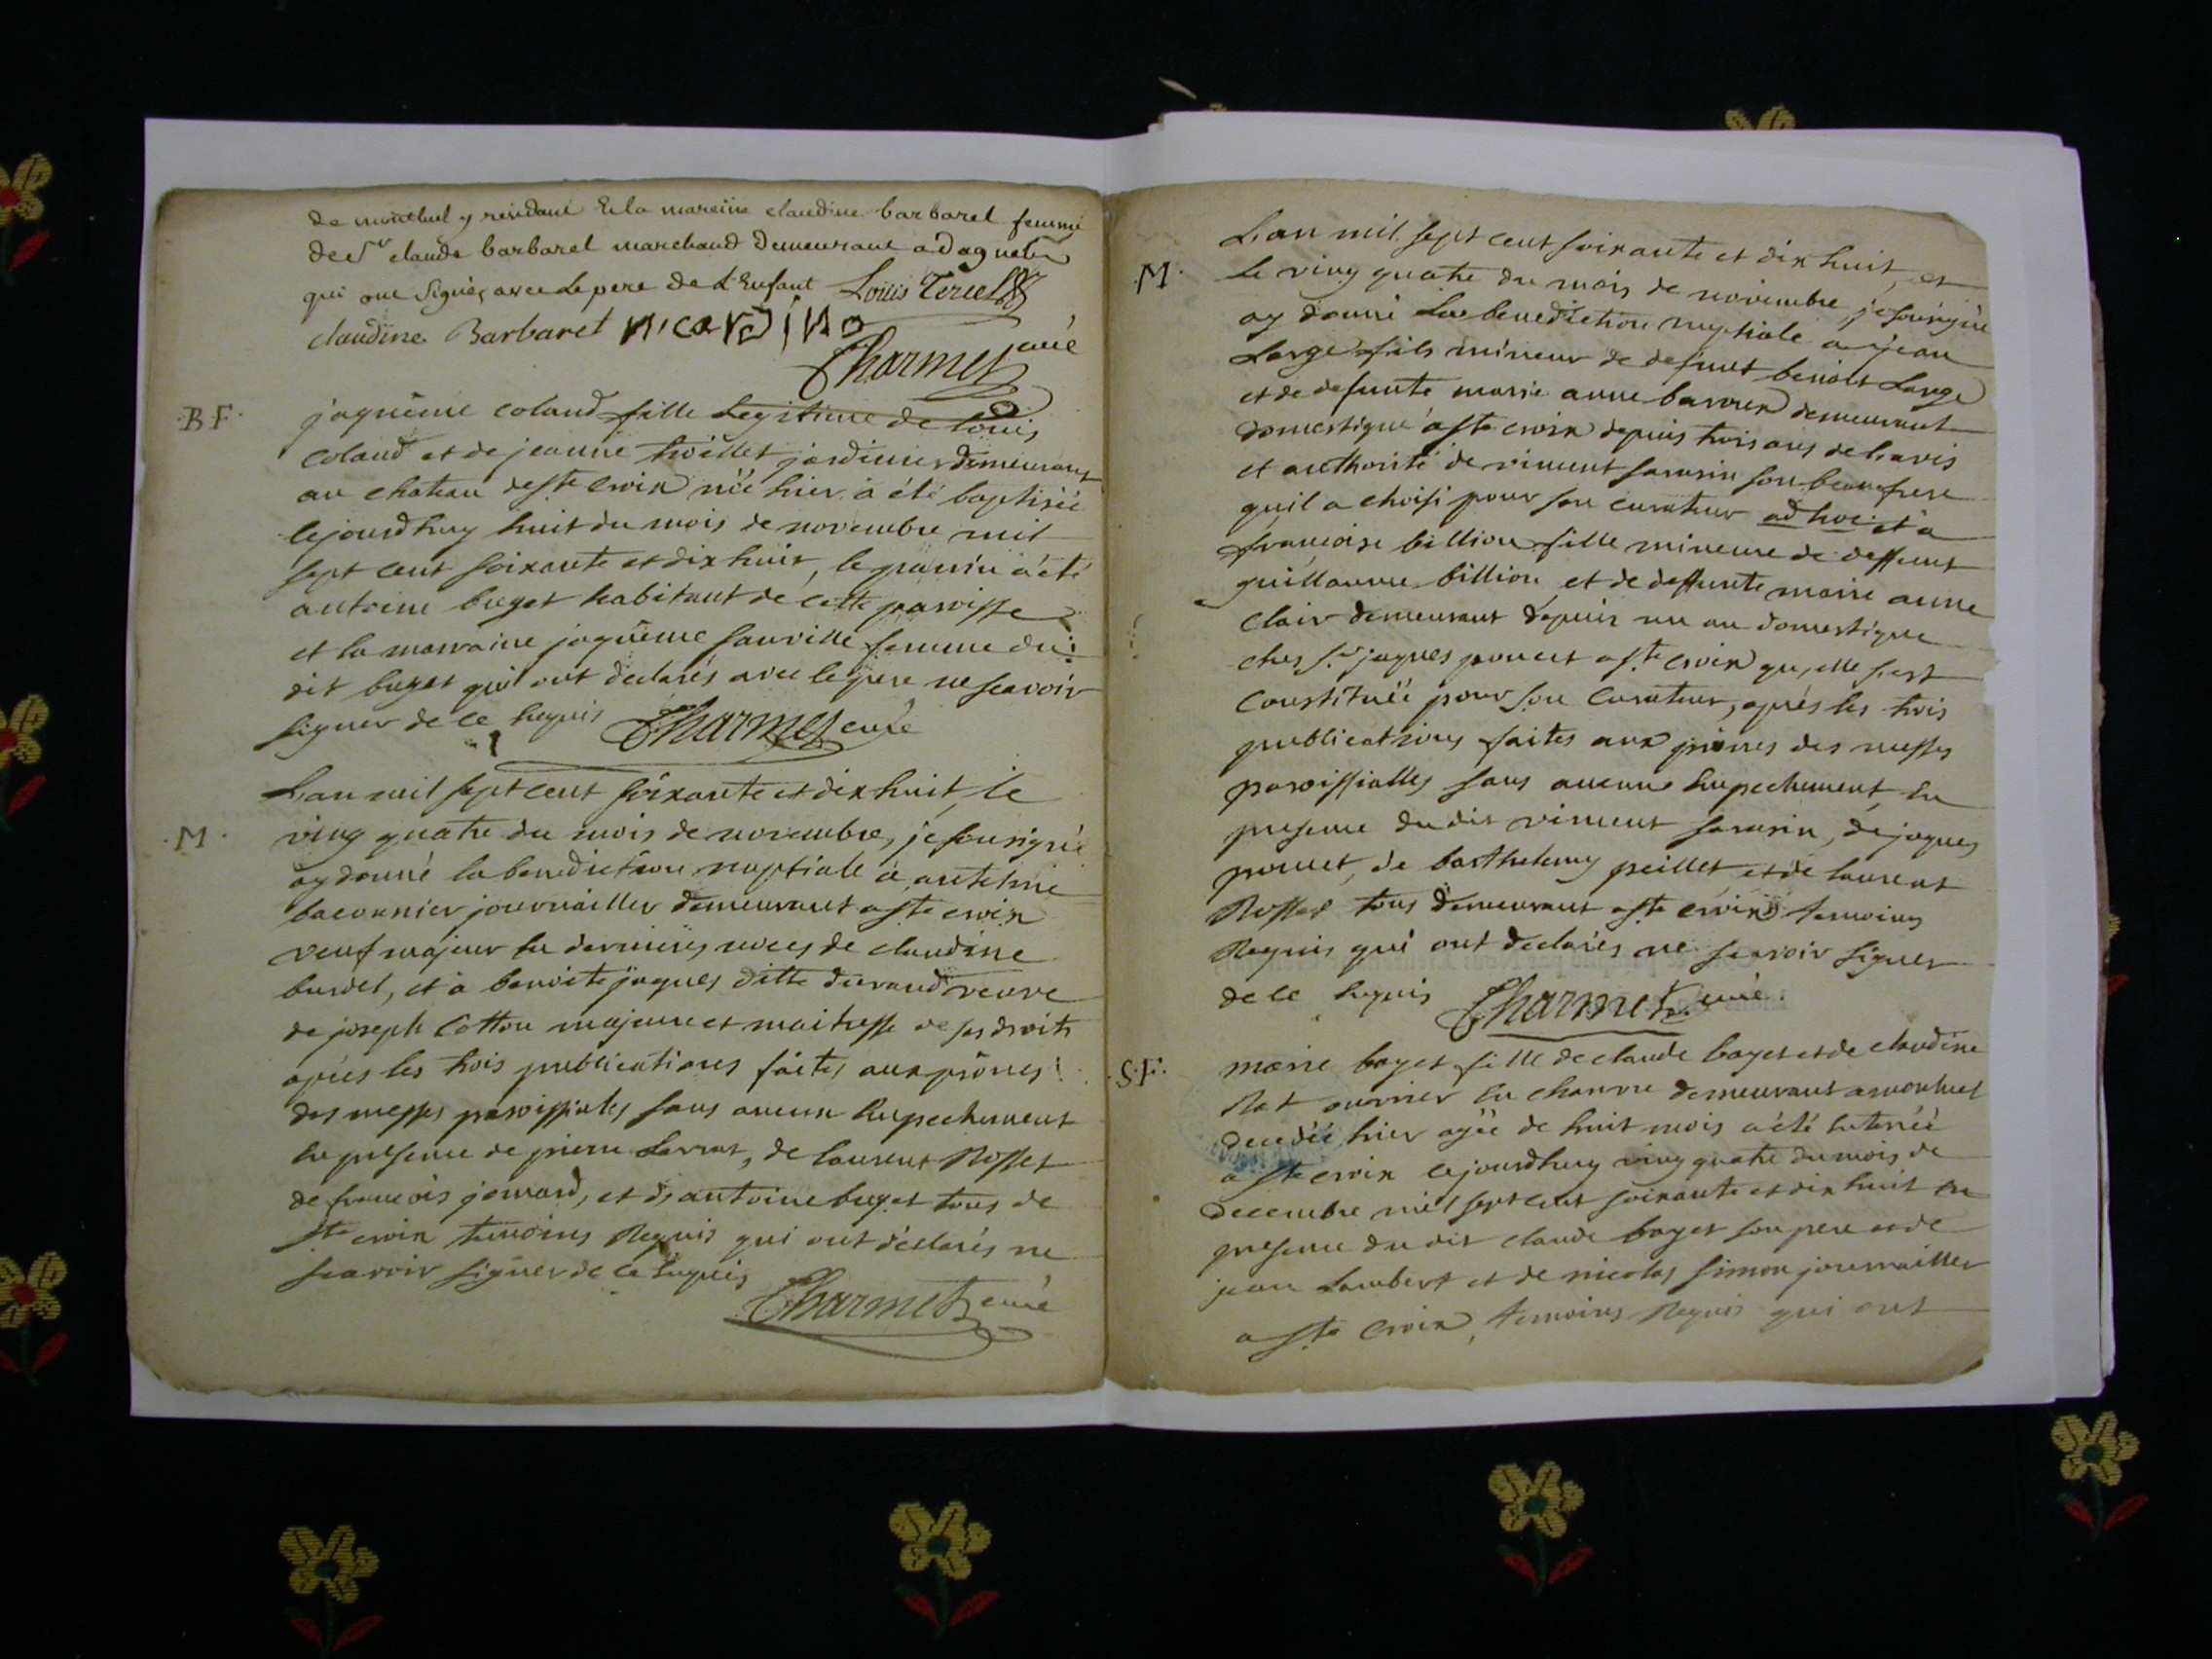 de montluel y residant Et la mareine claudine barbaret femme
de Sr claude barbaret marchand demeurant a dagneux
qui ont signés avec le pere de L'Enfant Louis Teriel
claudine Barbaret
Charmet curé
B F. jaquême coland fille legitime de louis
coland et de jeanne jardinier demeurant
au chateau de ste croix née hier a été baptisée
cejourdhuy huit du mois de novembre mil
sept cent soixante et dix huit, le parrin a été
antoine buget habitant de cette paroisse
et la marraine jaquême sauville femme du
dit buget qui ont declarés avec le pere ne scavoir
signer de ce Enquis Charmet curé
L'an mil sept cent soixante et dix huit, le
M. ving quatre du mois de novembre, je sousigné
ay donné la benediction nuptiale à antelme
baconnier journailler demeurant a ste croix
veuf majeur En dernieres noces de claudine
burdel, et à benoite jaques ditte durand veuve
de joseph Cotton majeure et maitresse de ses droits
après les trois publications faites aux prônes
des messes paroissiales sans aucun Empechement
En presence de pierre Larrat, de laurent Rosset
de francois jomard, et de antoine buget tous de
ste croix temoins Requis qui ont déclarés ne
scavoir signer de ce Enquis
Charmet curé
L'an mil sept cent soixante et dix huit, et
M. Le ving quatre du mois de novembre je sousigné
ay donné La benediction nuptiale a jean
Large fils mineur de defunt benoit Large
et de defunte marie anne demeurant
domestique à ste croix depuis trois ans de L'avis
et authorité de vincent sarasin son beaufrere
qu'il a choisi pour son curateur ad hoc et a
françoise billion fille mineure de deffunt
guillaume billion et de deffunte marie anne
Clair demeurant depuis un an domestique
ches Sr jaques poncet a ste croix qu'elle s'est
Constituée pour son Curateur, après les trois
publications faites aux prônes des messes
paroissialles sans aucune Empechement, En
presence du dit vincent sarasin, de jaques
poncet, de barthelemy peillet, et de laurent
Rosset tous demeurant a ste croix temoins
Requis qui ont declarés ne scavoir signer
de ce Enquis Charmet curé.
S.F. marie boget fille de claude boget et de claudine
Rat ouvrier En chanvre demeurant a montluel
decedée hier agée de huit mois a été Enterrée
a ste croix cejourdhuy ving quatre du mois de
decembre mil sept cent soixante et dix huit En
presence du dit claude boget son pere et de
jean Lambert et de nicolas simon journailler
a ste Croix, temoins Requis qui ont